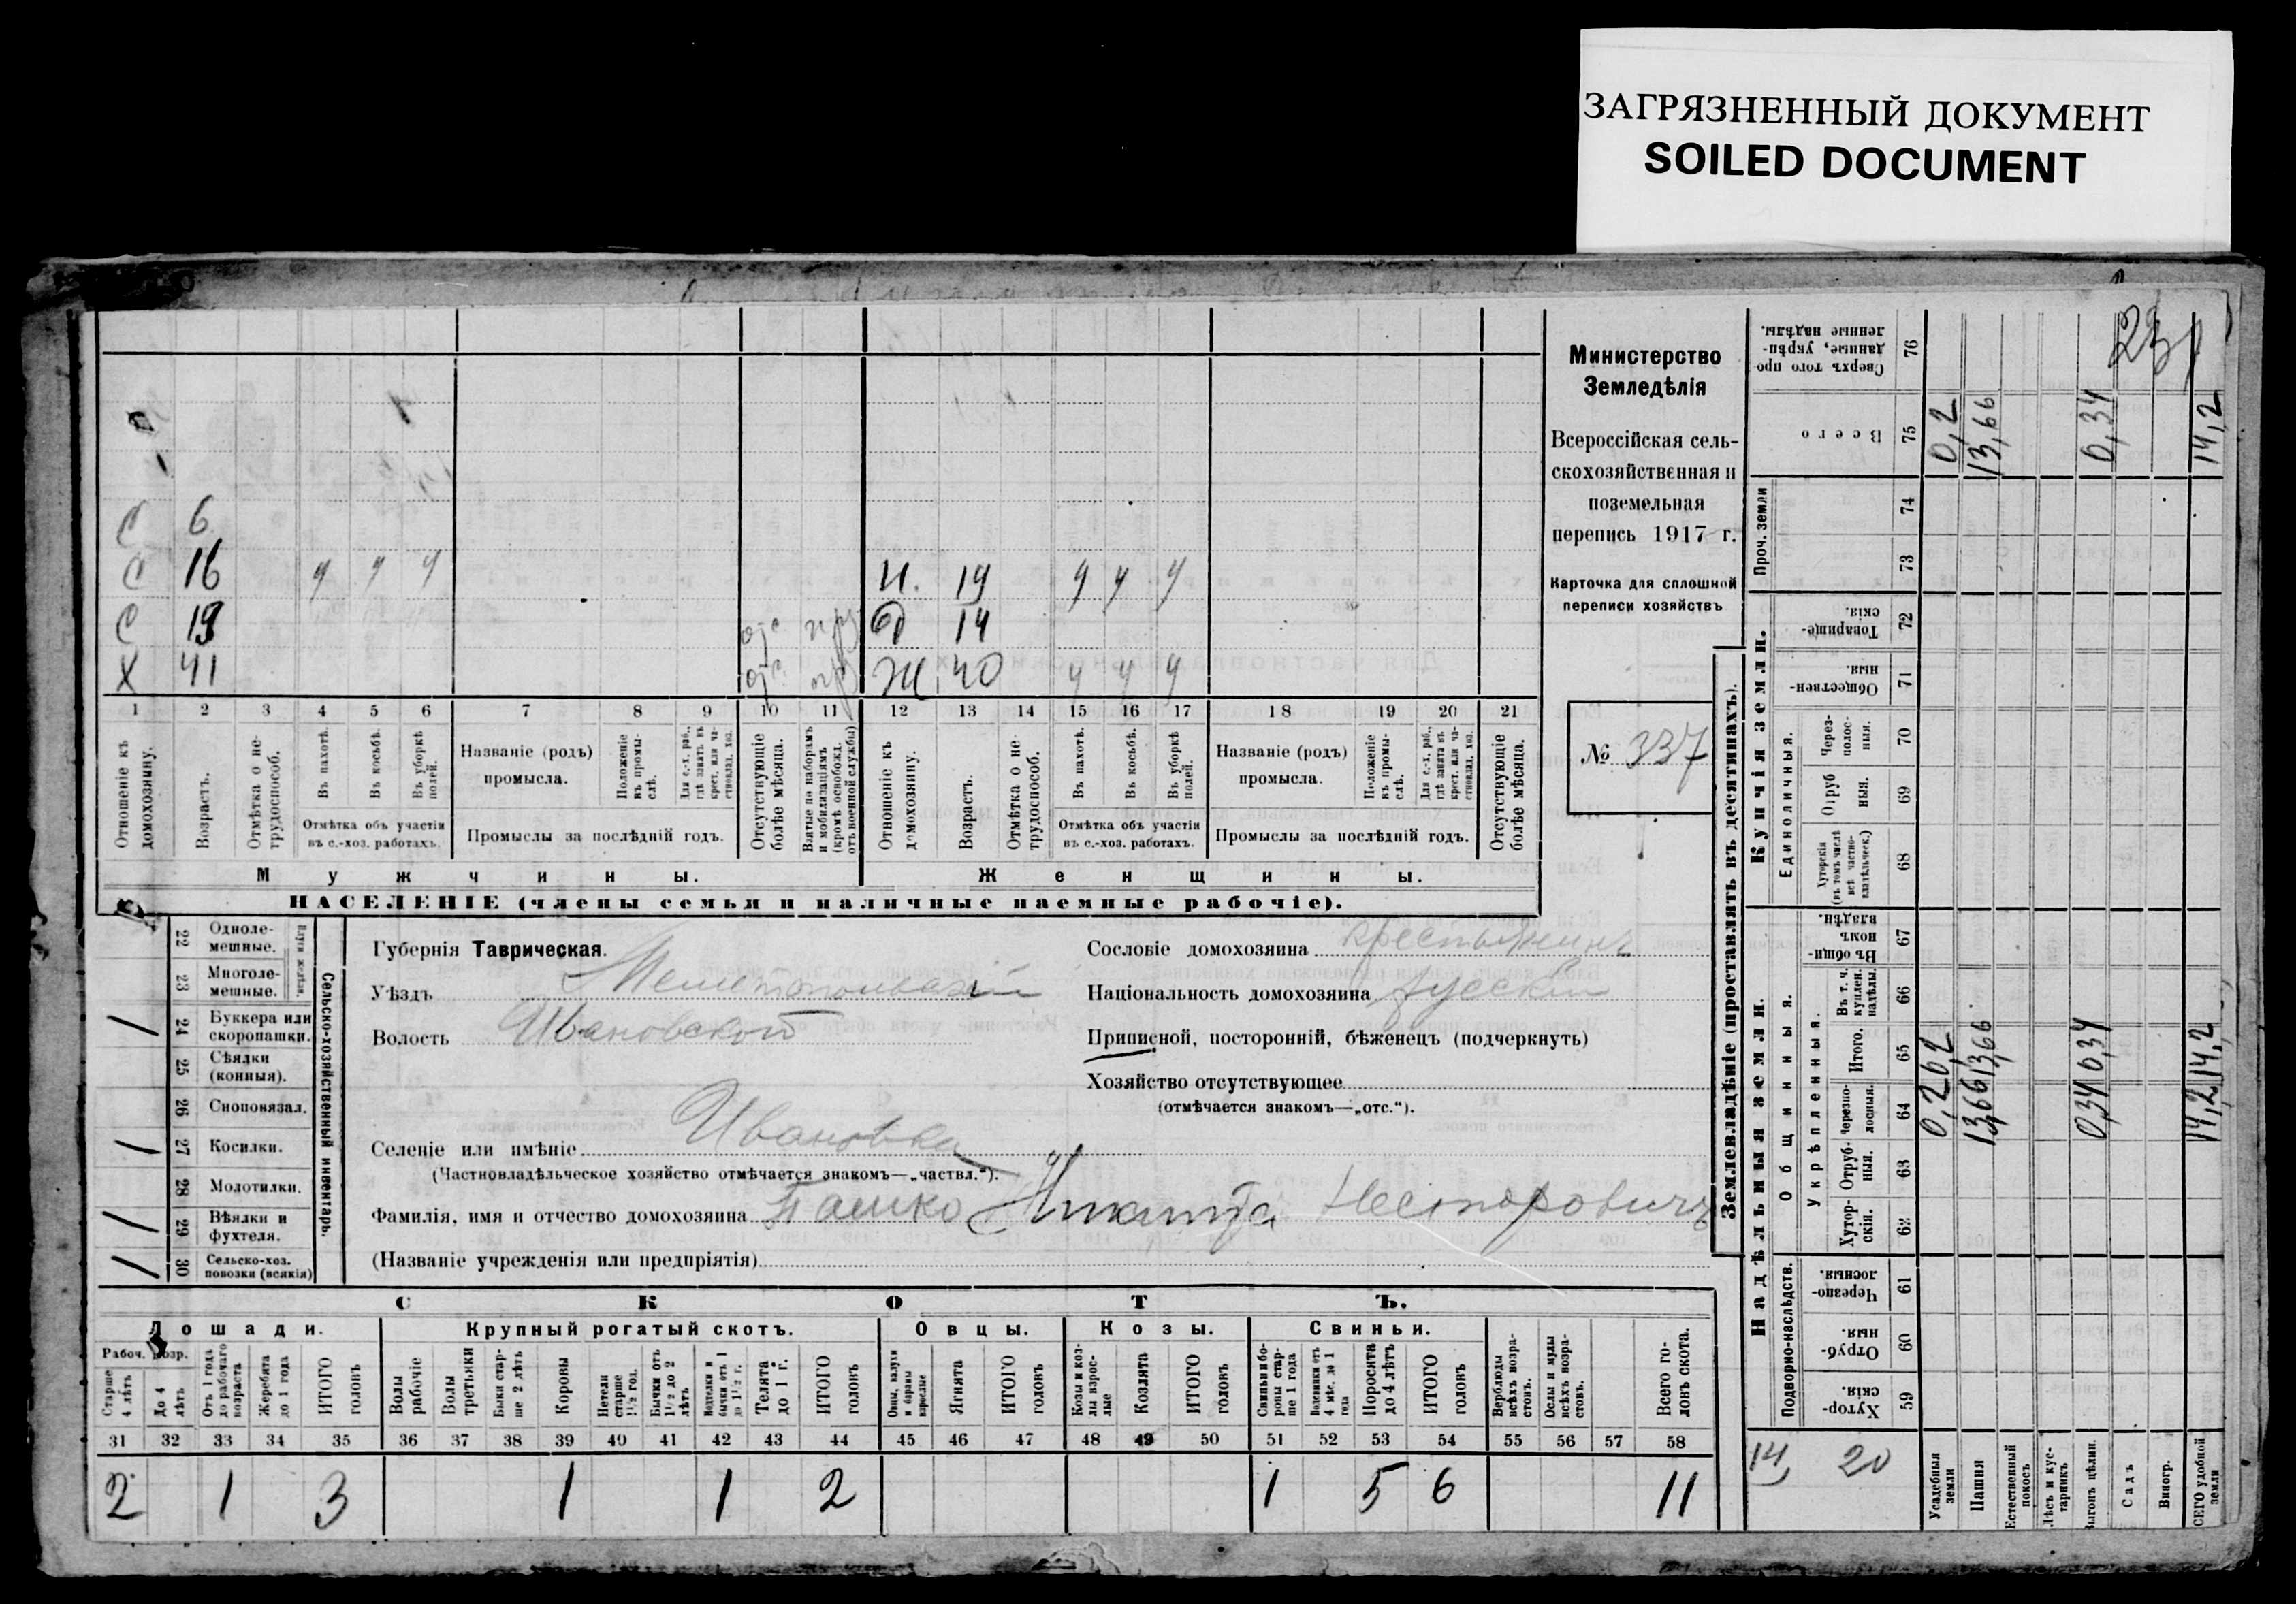 ЗАГРЯЗНЕННЫЙ ДОКУМЕНТ
SOILED DOCUMENT
С 6
С 16 у у у Н. 19 у у у
С 19 отс. пр Д 14
Х 41 отс. пр Ж 40 у у у
1 2 3 4 5 6 7 8 9 10 11 12 13 14 15 16 17 18 19 20 21
Отношеніе къ домохозяину.
Возрастъ.
Отмѣтка о не-трудоспособ.
Въ пахотѣ.
Въ косьбѣ.
Въ уборкѣ полей.
Отмѣтка объ участіи въ с.-хоз. работахъ.
Названіе (родъ) промысла.
Положеніе въ промы-слѣ.
Для с.-х. раб., гдѣ занятъ въ крест. или ча-стновлад. хоз.
Промыслы за послѣдній годъ.
Отсутствующіе болѣе мѣсяца.
Взятые по наборамъ и мобилизаціямъ (кромѣ освобожд. отъ военной службы)
Отношеніе къ домохозяину.
Возрастъ.
Отмѣтка о не-трудоспособ.
Въ пахотѣ.
Въ косьбѣ.
Въ уборкѣ полей.
Отмѣтка объ участіи въ с.-хоз. работахъ.
Названіе (родъ) промысла.
Положеніе въ промы-слѣ.
Для с.-х. раб., гдѣ занята въ крест. или ча-стновлад. хоз.
Промыслы за послѣдній годъ.
Отсутствующіе болѣе мѣсяца.
Мужчины.
Женщины.
НАСЕЛЕНІЕ (члены семьи и наличные наемные рабочіе).
Министерство
Земледѣлія
Всероссійская сель-
скохозяйственная и
поземельная
перепись 1917 г.
Карточка для сплошной
переписи хозяйствъ
№ 337
22 Одноле-мешные.
23 Многоле-мешные.
/ 24 Буккера или скоропашки.
25 Сѣялки (конныя).
26 Сноповязал.
/ 27 Косилки.
28 Молотилки.
/ 29 Вѣялки и фухтеля.
/ 30 Сельско-хоз. повозки (всякія)
Сельско-хозяйственный инвентарь.
Губернія Таврическая.
Уѣздъ Мелитопольскій
Волость Ивановской
Селеніе или имѣніе Ивановка
(Частновладѣльческое хозяйство отмѣчается знакомъ—„частвл.“).
Фамилія, имя и отчество домохозяина Пашко Никита Несторовичъ
(Названіе учрежденія или предпріятія)
Сословіе домохозяина крестьянинъ
Національность домохозяина русскій
Приписной, посторонній, бѣженецъ (подчеркнуть)
Хозяйство отсутствующее
(отмѣчается знакомъ—„отс.“).
СКОТЪ.
Лошади. Крупный рогатый скотъ. Овцы. Козы. Свиньи.
Рабоч. возр.
Старше 4 лѣтъ
До 4 лѣтъ
Отъ 1 года до рабочаго возраста
Жеребята до 1 года
ИТОГО головъ
Волы рабочіе
Волы третьяки
Быки стар-ше 2 лѣтъ
Коровы
Нетели старше 1½ год.
Бычки отъ 1½ до 2 лѣтъ
бычки отъ 1 до 1½ г.
Телята до 1 г.
ИТОГО головъ
Овцы, валухи и бараны взрослые
Ягнята
ИТОГО головъ
Козы и коз-лы взрос-лые
Козлята
ИТОГО головъ
Свиньи и бо-ровы стар-ше 1 года
Подсвинки отъ 4 мѣс. до 1 года
Поросята до 4 лѣтъ
ИТОГО головъ
Верблюды всѣхъ возра-стовъ.
Ослы и мулы всѣхъ возра-стовъ.
Всего го-ловъ скота.
31 32 33 34 35 36 37 38 39 40 41 42 43 44 45 46 47 48 49 50 51 52 53 54 55 56 57 58
2 1 3 1 1 2 1 5 6 11
Землевладѣніе (проставлять въ десятинахъ).
Надѣльныя земли.
Купчія земли.
Проч. земли
Подворно-наслѣдств.
Общинныя.
Укрѣпленныя.
Единоличныя.
Сверхъ того про данные, укрѣп-ленные надѣлы. 76
Всего 75 0,2 13,66 0,34 14,2
74
73
Товарище-скія. 72
Обществен-ныя. 71
Через-полос-ныя. 70
Отруб ныя. 69
Хуторскія (въ томъ числѣ всѣ частно-владѣльческ.) 68
Въ общи-номъ владѣн. 67
Въ т. ч. куплен. надѣлы. 66
Итого. 65 0,2 13,66 0,34 14,2
Черезпо-лосныя. 64 0,2 13,66 0,34 14,2
Отруб-ныя. 63
Хутор-скія. 62
Черезпо-лосныя. 61
Отруб-ныя. 60
Хутор-скія. 59
14, 20
Усадебныя земли
Пашня
Естественный покосъ
Лѣсъ и кус-тарникъ
Выгонъ цѣлин.
Садъ
Виногр.
ВСЕГО удобной земли
23